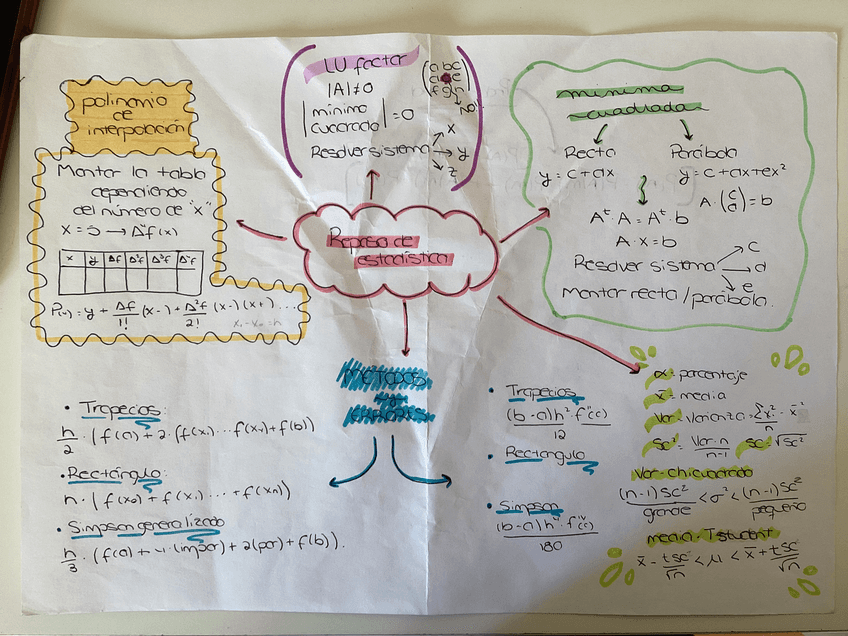 Repaso de
estadística
polinomio
de
interpolación
Montar la tabla
dependiendo
del número de "x"
x = 5 → Δ⁴f(x)
x y Δf Δ²f Δ³f Δ⁴f
P(x) = y + Δf/1! (x-) + Δ²f/2! (x-)(x+) ...
LU factor
|A| ≠ 0
|mínimo
cuadrado| = 0
Resolver sistema → x
→ y
→ z
mínima
cuadrada
Recta
y = c + ax
Parábola
y = c + ax + ex²
A · (c a) = b
Aᵗ · A = Aᵗ · b
A · x = b
Resolver sistema → c
→ d
→ e
Montar recta / parábola.
Métodos
y
errores
• Trapecios:
h/2 · (f(a) + 2 · (f(x₁) ... f(xₙ₋₁) + f(b))
• Rectángulo:
h · (f(x₀) + f(x₁) ... + f(xₙ))
• Simpson generalizado
h/3 · (f(a) + 4 · (impar) + 2(par) + f(b)).
• Trapecios
(b-a)h² · f''(c)/12
• Rectángulo
• Simpson
(b-a)h⁴ · fⁱᵛ(c)/180
α = porcentaje
x̄ = media
Var = Varianza = Σx²/n - x̄²
Sc² = Var·n/n-1 Sc = √Sc²
Var - chicuadrado
(n-1)Sc²/grande < σ² < (n-1)Sc²/pequeño
media - Tstudent
x̄ - tSc/√n < μ < x̄ + tSc/√n